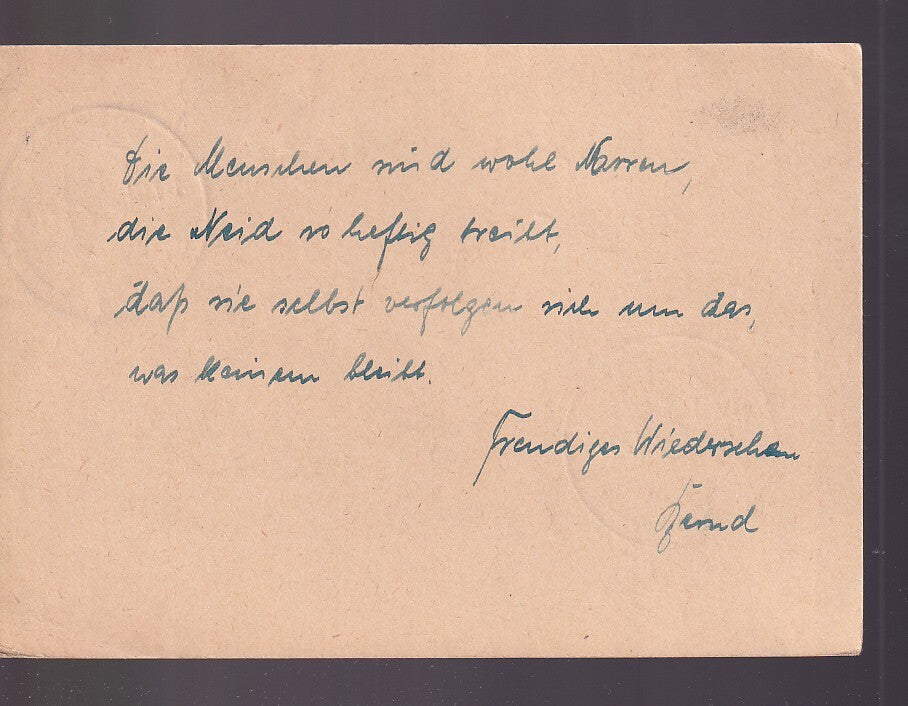 Die Menschen sind wohl Narren,
die Neid so heftig treibt,
daß sie selbst verfolgen sich um das,
was keinem bleibt.
Freudiges Wiedersehen
Bernd